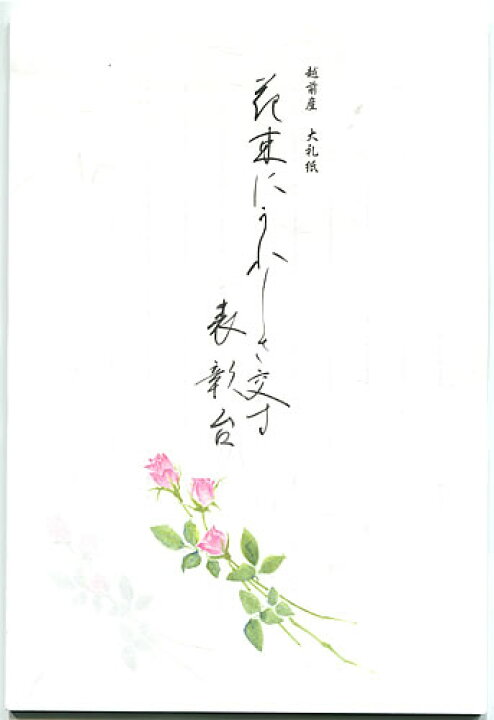 越前産 大礼紙
花束にうれしさ交す
表彰台